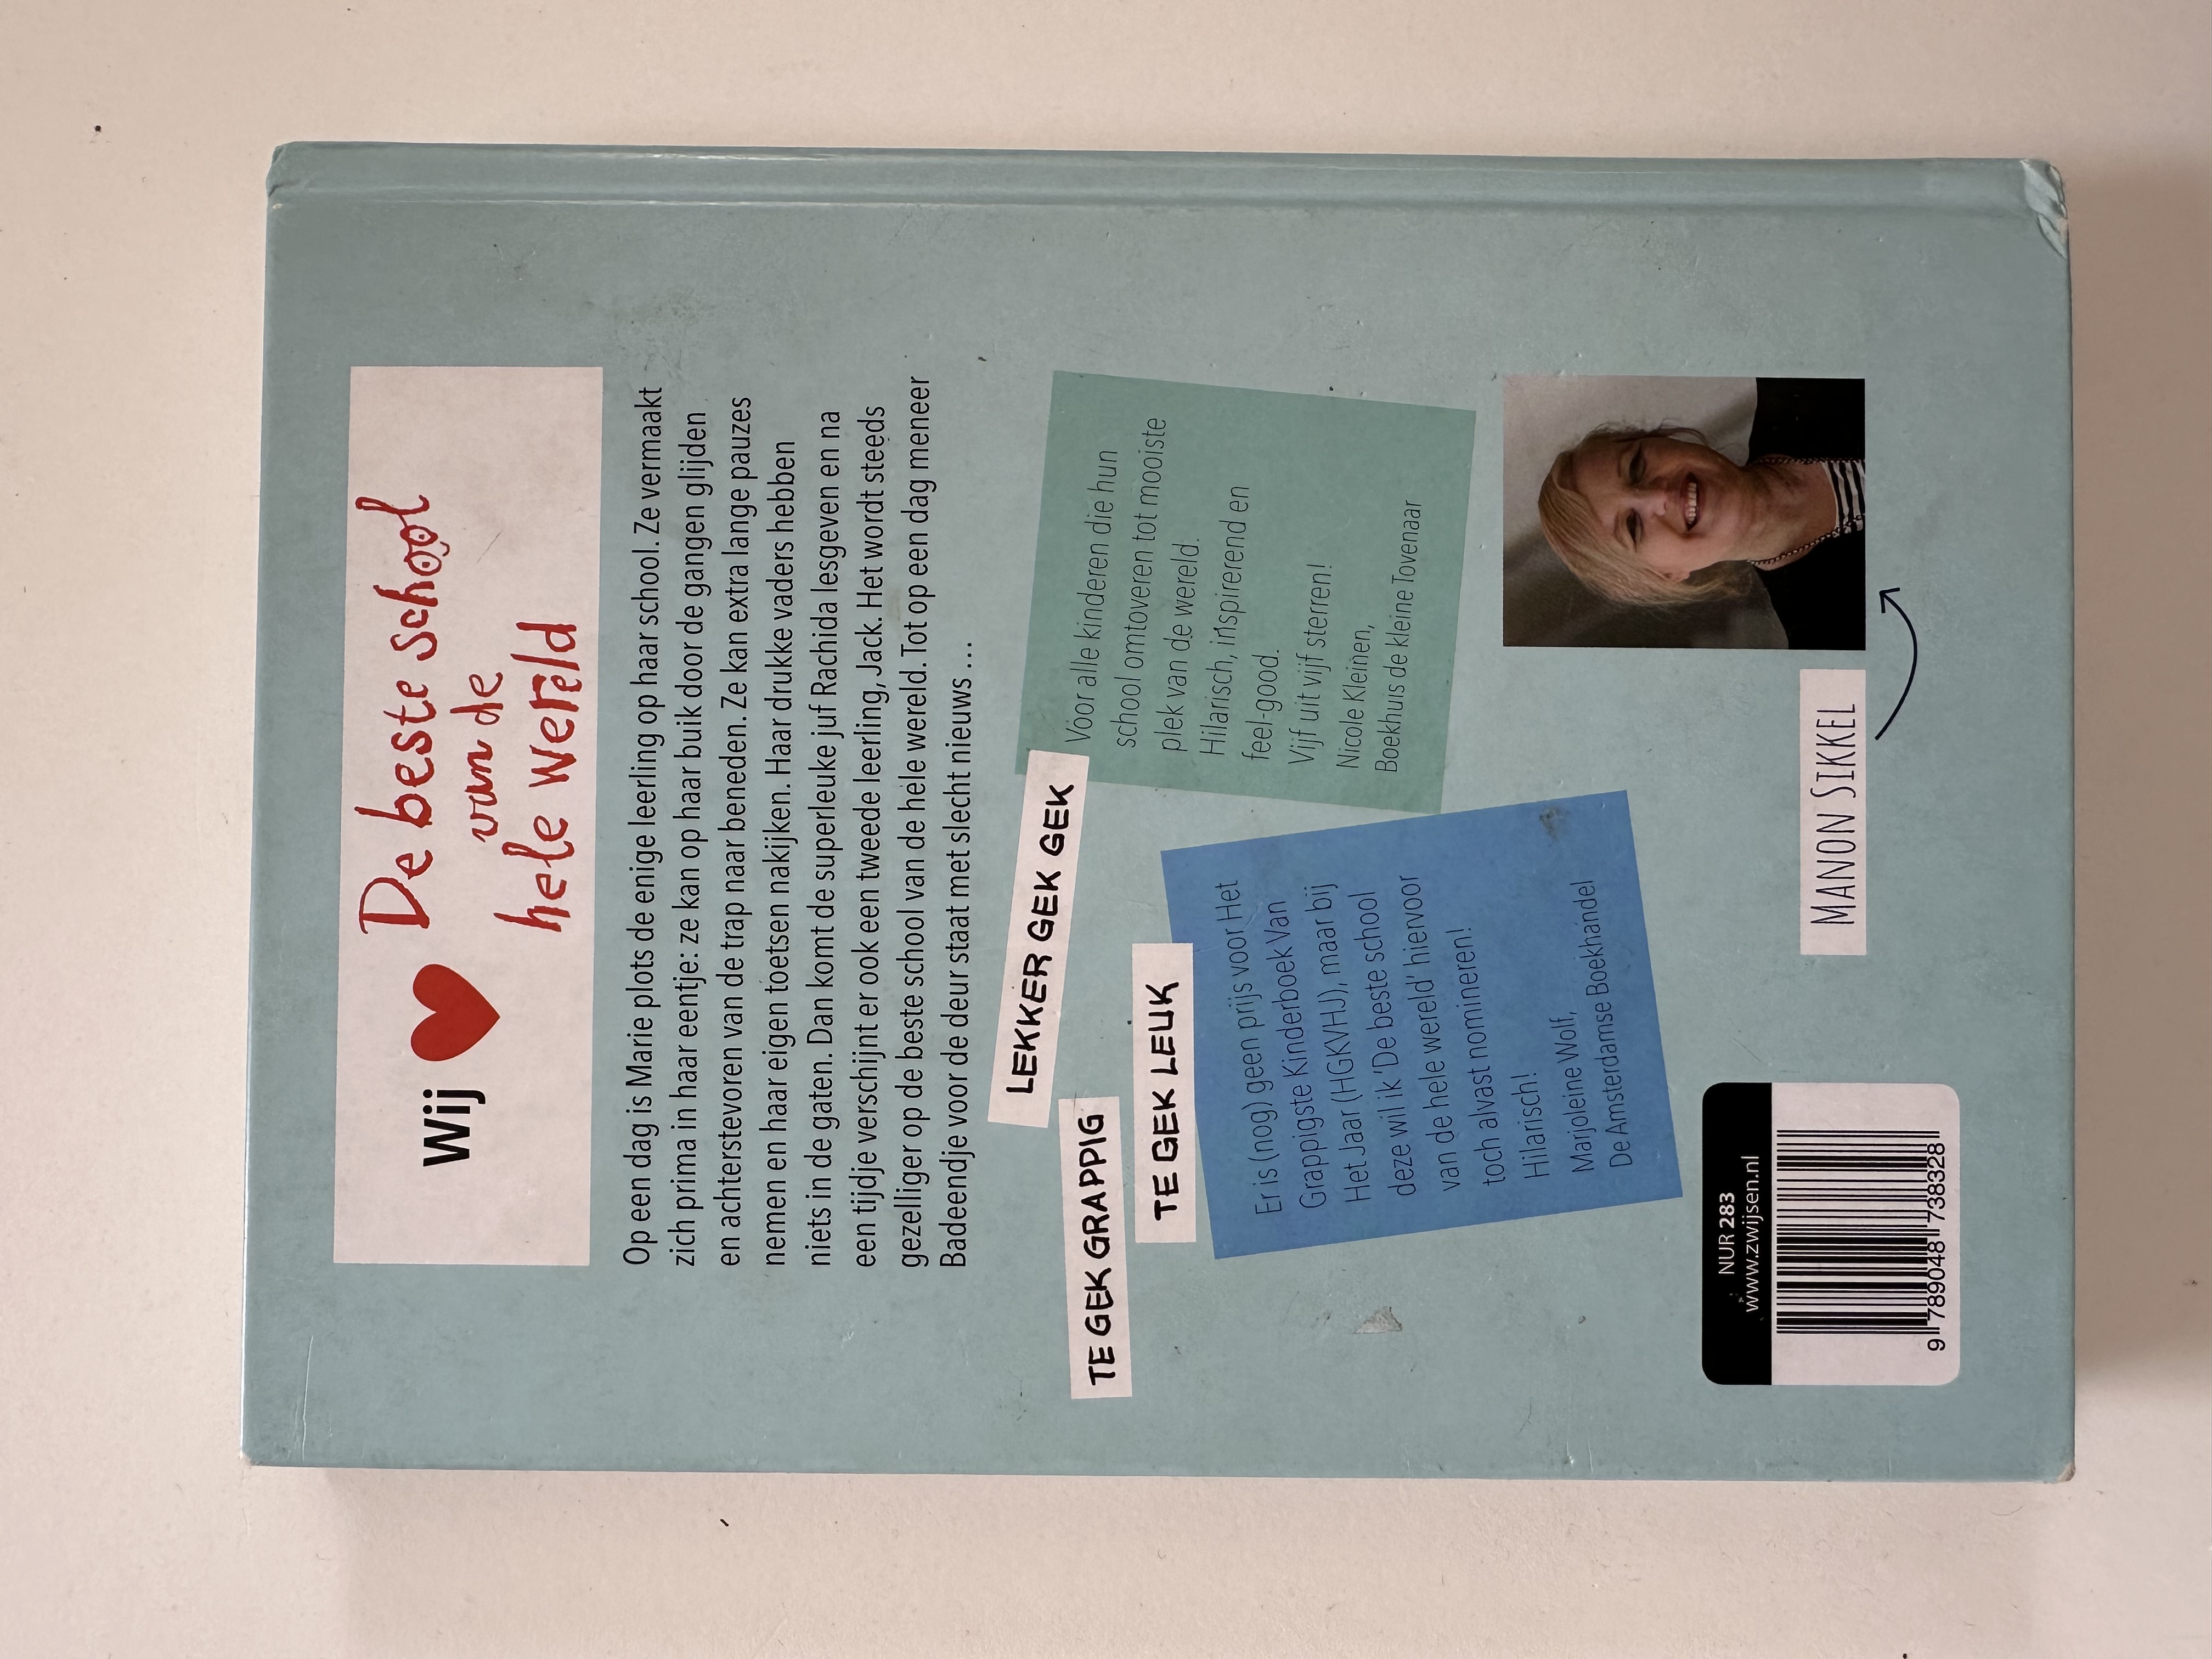 Wij
De beste school
van de
hele wereld
Op een dag is Marie plots de enige leerling op haar school. Ze vermaakt
zich prima in haar eentje: ze kan op haar buik door de gangen glijden
en achterstevoren van de trap naar beneden. Ze kan extra lange pauzes
nemen en haar eigen toetsen nakijken. Haar drukke vaders hebben
niets in de gaten. Dan komt de superleuke juf Rachida lesgeven en na
een tijdje verschijnt er ook een tweede leerling, Jack. Het wordt steeds
gezelliger op de beste school van de hele wereld. Tot op een dag meneer
Badeendje voor de deur staat met slecht nieuws ...
LEKKER GEK GEK
TE GEK GRAPPIG
TE GEK LEUK
Voor alle kinderen die hun
school omtoveren tot mooiste
plek van de wereld.
Hilarisch, inspirerend en
feel-good.
Vijf uit vijf sterren!
Nicole Kleinen,
Boekhuis de kleine Tovenaar
Er is (nog) geen prijs voor Het
Grappigste Kinderboek Van
Het Jaar (HGKVHJ), maar bij
deze wil ik 'De beste school
van de hele wereld' hiervoor
toch alvast nomineren!
Hilarisch!
Marjoleine Wolf,
De Amsterdamse Boekhandel
MANON SIKKEL
NUR 283
www.zwijsen.nl
9 789048 738328